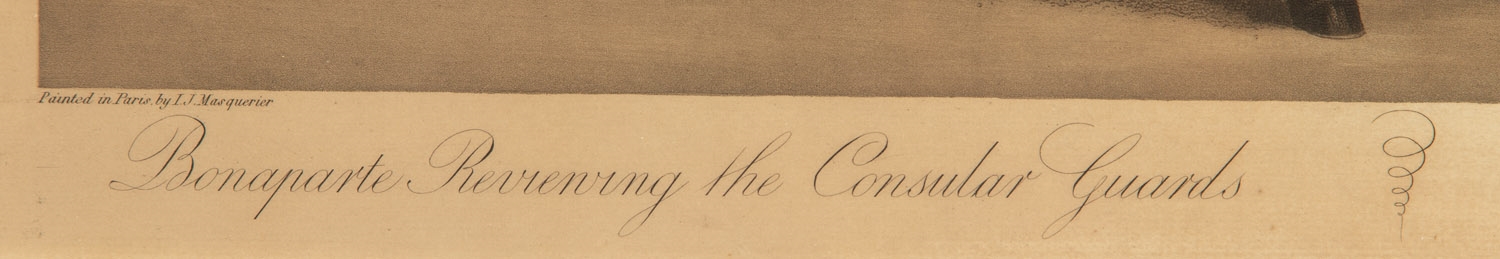 Painted in Paris, by I.J. Masquerier
Bonaparte Reviewing the Consular Guards